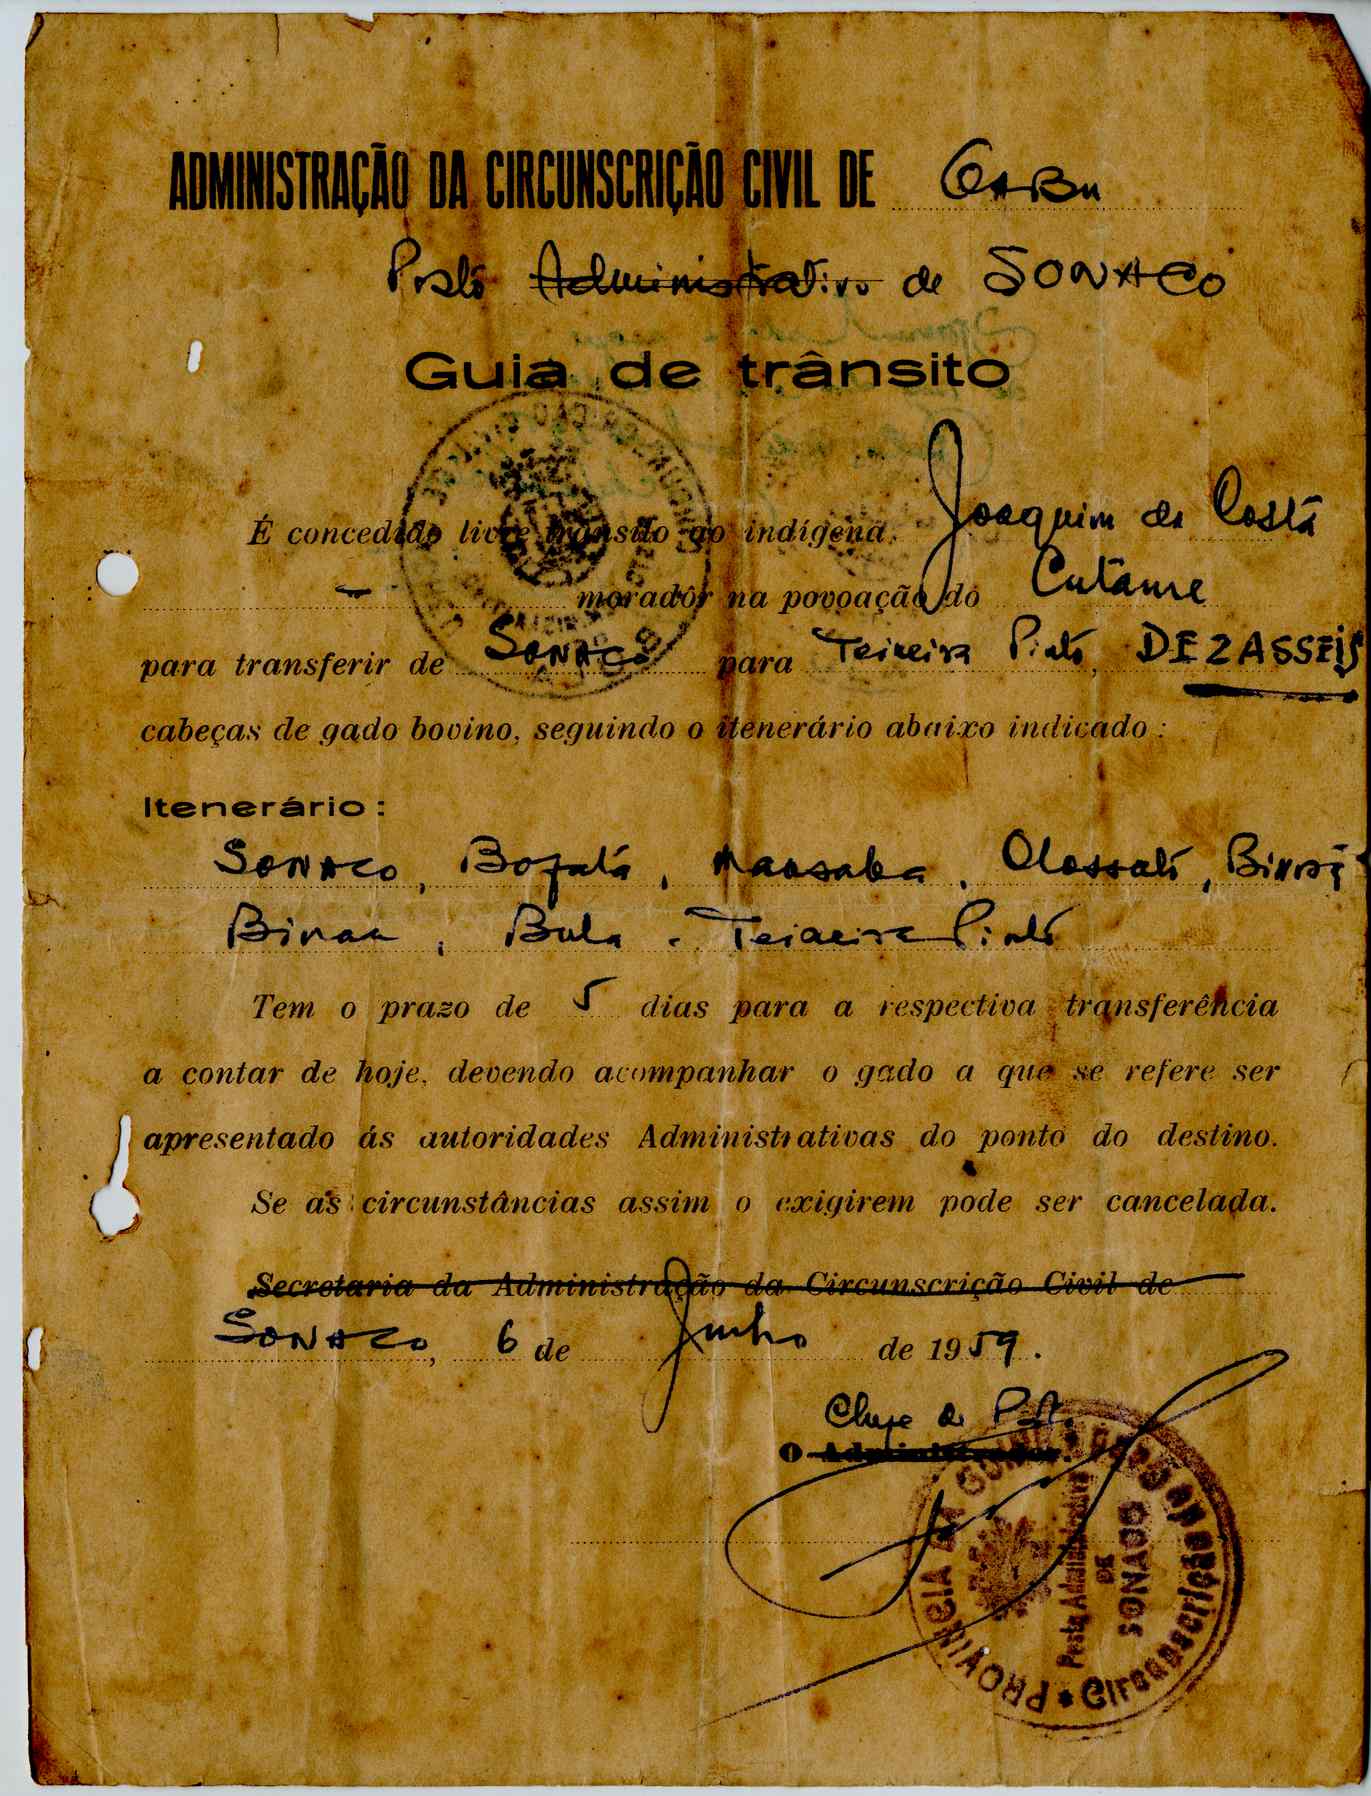 ADMINISTRAÇÃO DA CIRCUNSCRIÇÃO CIVIL DE GABU
Posto Administrativo de SONACO
Guia de trânsito
É concedido livre trânsito ao indígena, Joaquim da Costa
moradôr na povoação do Cutame
para transferir de SONACO para Teixeira Pinto, DEZASSEIS
cabeças de gado bovino, seguindo o itenerário abaixo indicado:
Itenerário:
SONACO, Bafatá, Mansaba, Olossato,
Binar, Bula - Teixeira Pinto
Tem o prazo de 5 dias para a respectiva transferência
a contar de hoje, devendo acompanhar o gado a que se refere ser
apresentado ás autoridades Administrativas do ponto do destino.
Se as circunstâncias assim o exigirem pode ser cancelada.
Secretaria da Administração da Circunscrição Civil de
SONACO, 6 de Junho de 1959.
Chefe de Posto
O Administrador
PROVINCIA DA GUINÉ
Circunscrição
Posto Administrativo
DE
SONACO